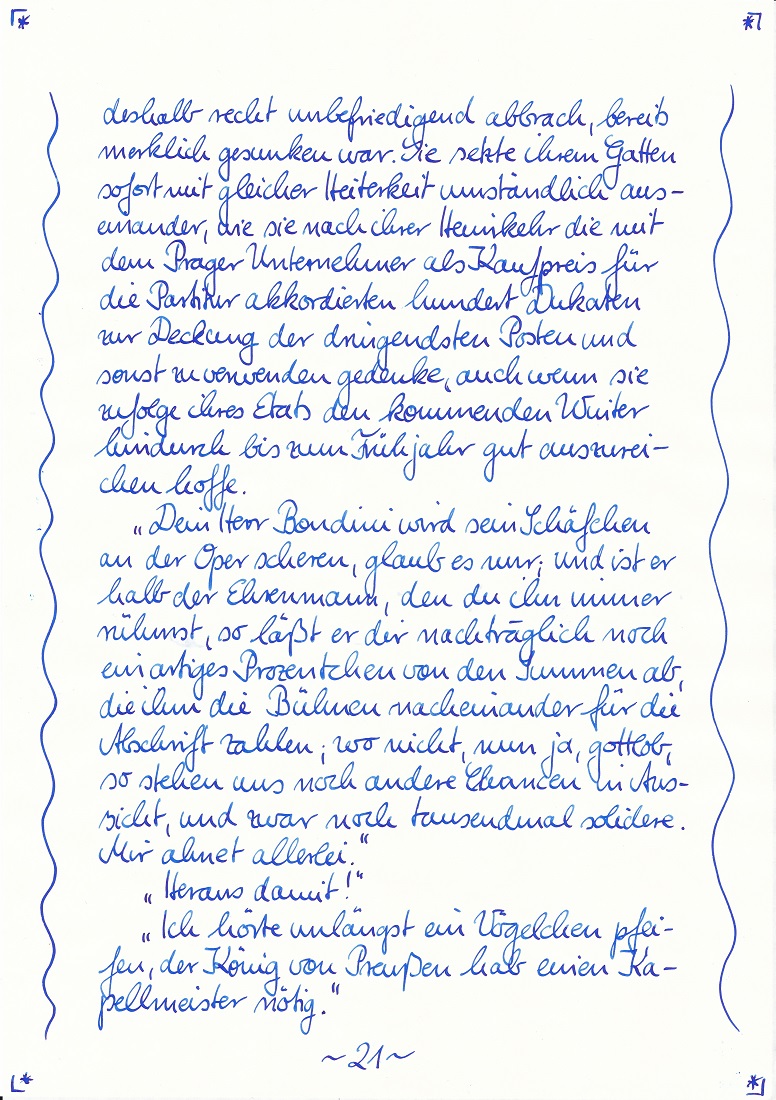 deshalb recht unbefriedigend abbrach, bereits
merklich gesunken war. Sie setzte ihrem Gatten
sofort mit gleicher Heiterkeit umständlich aus-
einander, wie sie nach ihrer Heimkehr die mit
dem Prager Unternehmer als Kaufpreis für
die Partitur akkordierten hundert Dukaten
zur Deckung der dringendsten Posten und
sonst zu verwenden gedenke, auch wenn sie
zufolge ihres Etats den kommenden Winter
hindurch bis zum Frühjahr gut auszurei-
chen hoffe.
„Dein Herr Bondini wird sein Schäfchen
an der Oper scheren, glaub es nur; und ist er
halb der Ehrenmann, den du ihn immer
rühmst, so läßt er dir nachträglich noch
ein artiges Prozentchen von den Summen ab,
die ihm die Bühnen nacheinander für die
Abschrift zahlen; wo nicht, nun ja, gottlob,
so stehen uns noch andere Chancen in Aus-
sicht, und zwar noch tausendmal solidere.
Mir ahnet allerlei.“
„Heraus damit!“
„Ich hörte unlängst ein Vögelchen pfei-
fen, der König von Preußen hab einen Ka-
pellmeister nötig.“
~21~